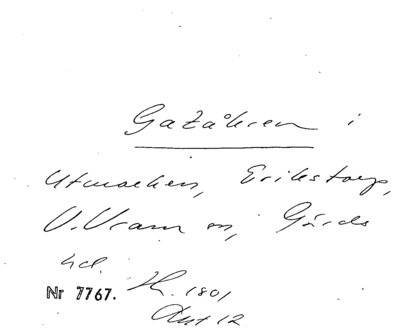 Gazåkren i
Utmarken, Erikstorp,
V. Vram sn, Gärds
hd.
Nr 7767. Sk. 1801
Akt 12